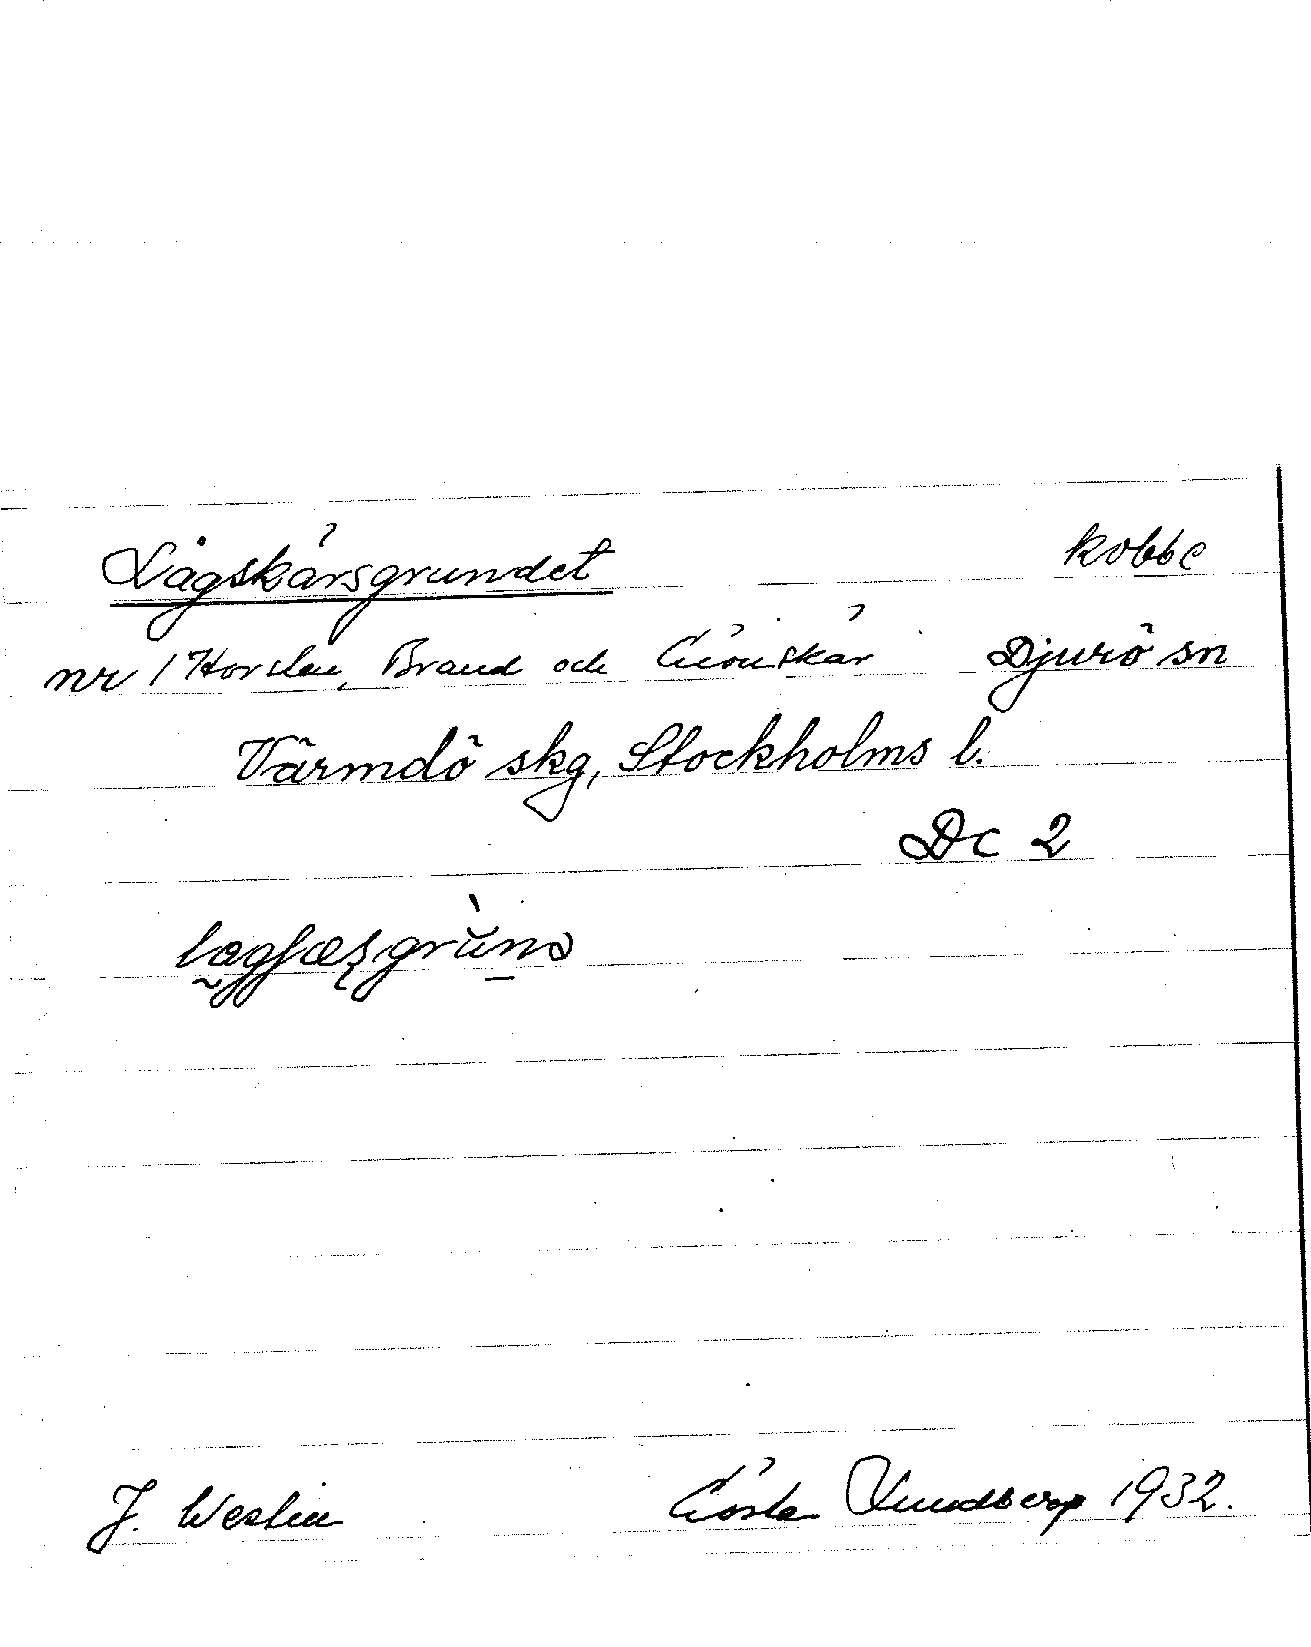 Lågskärsgrundet kobbe
nr 1 Horsten, Brand och Grönskär Djurö sn
Värmdö skg, Stockholms l.
Dc 2
J. Weslin Gösta Lundberg 1932.